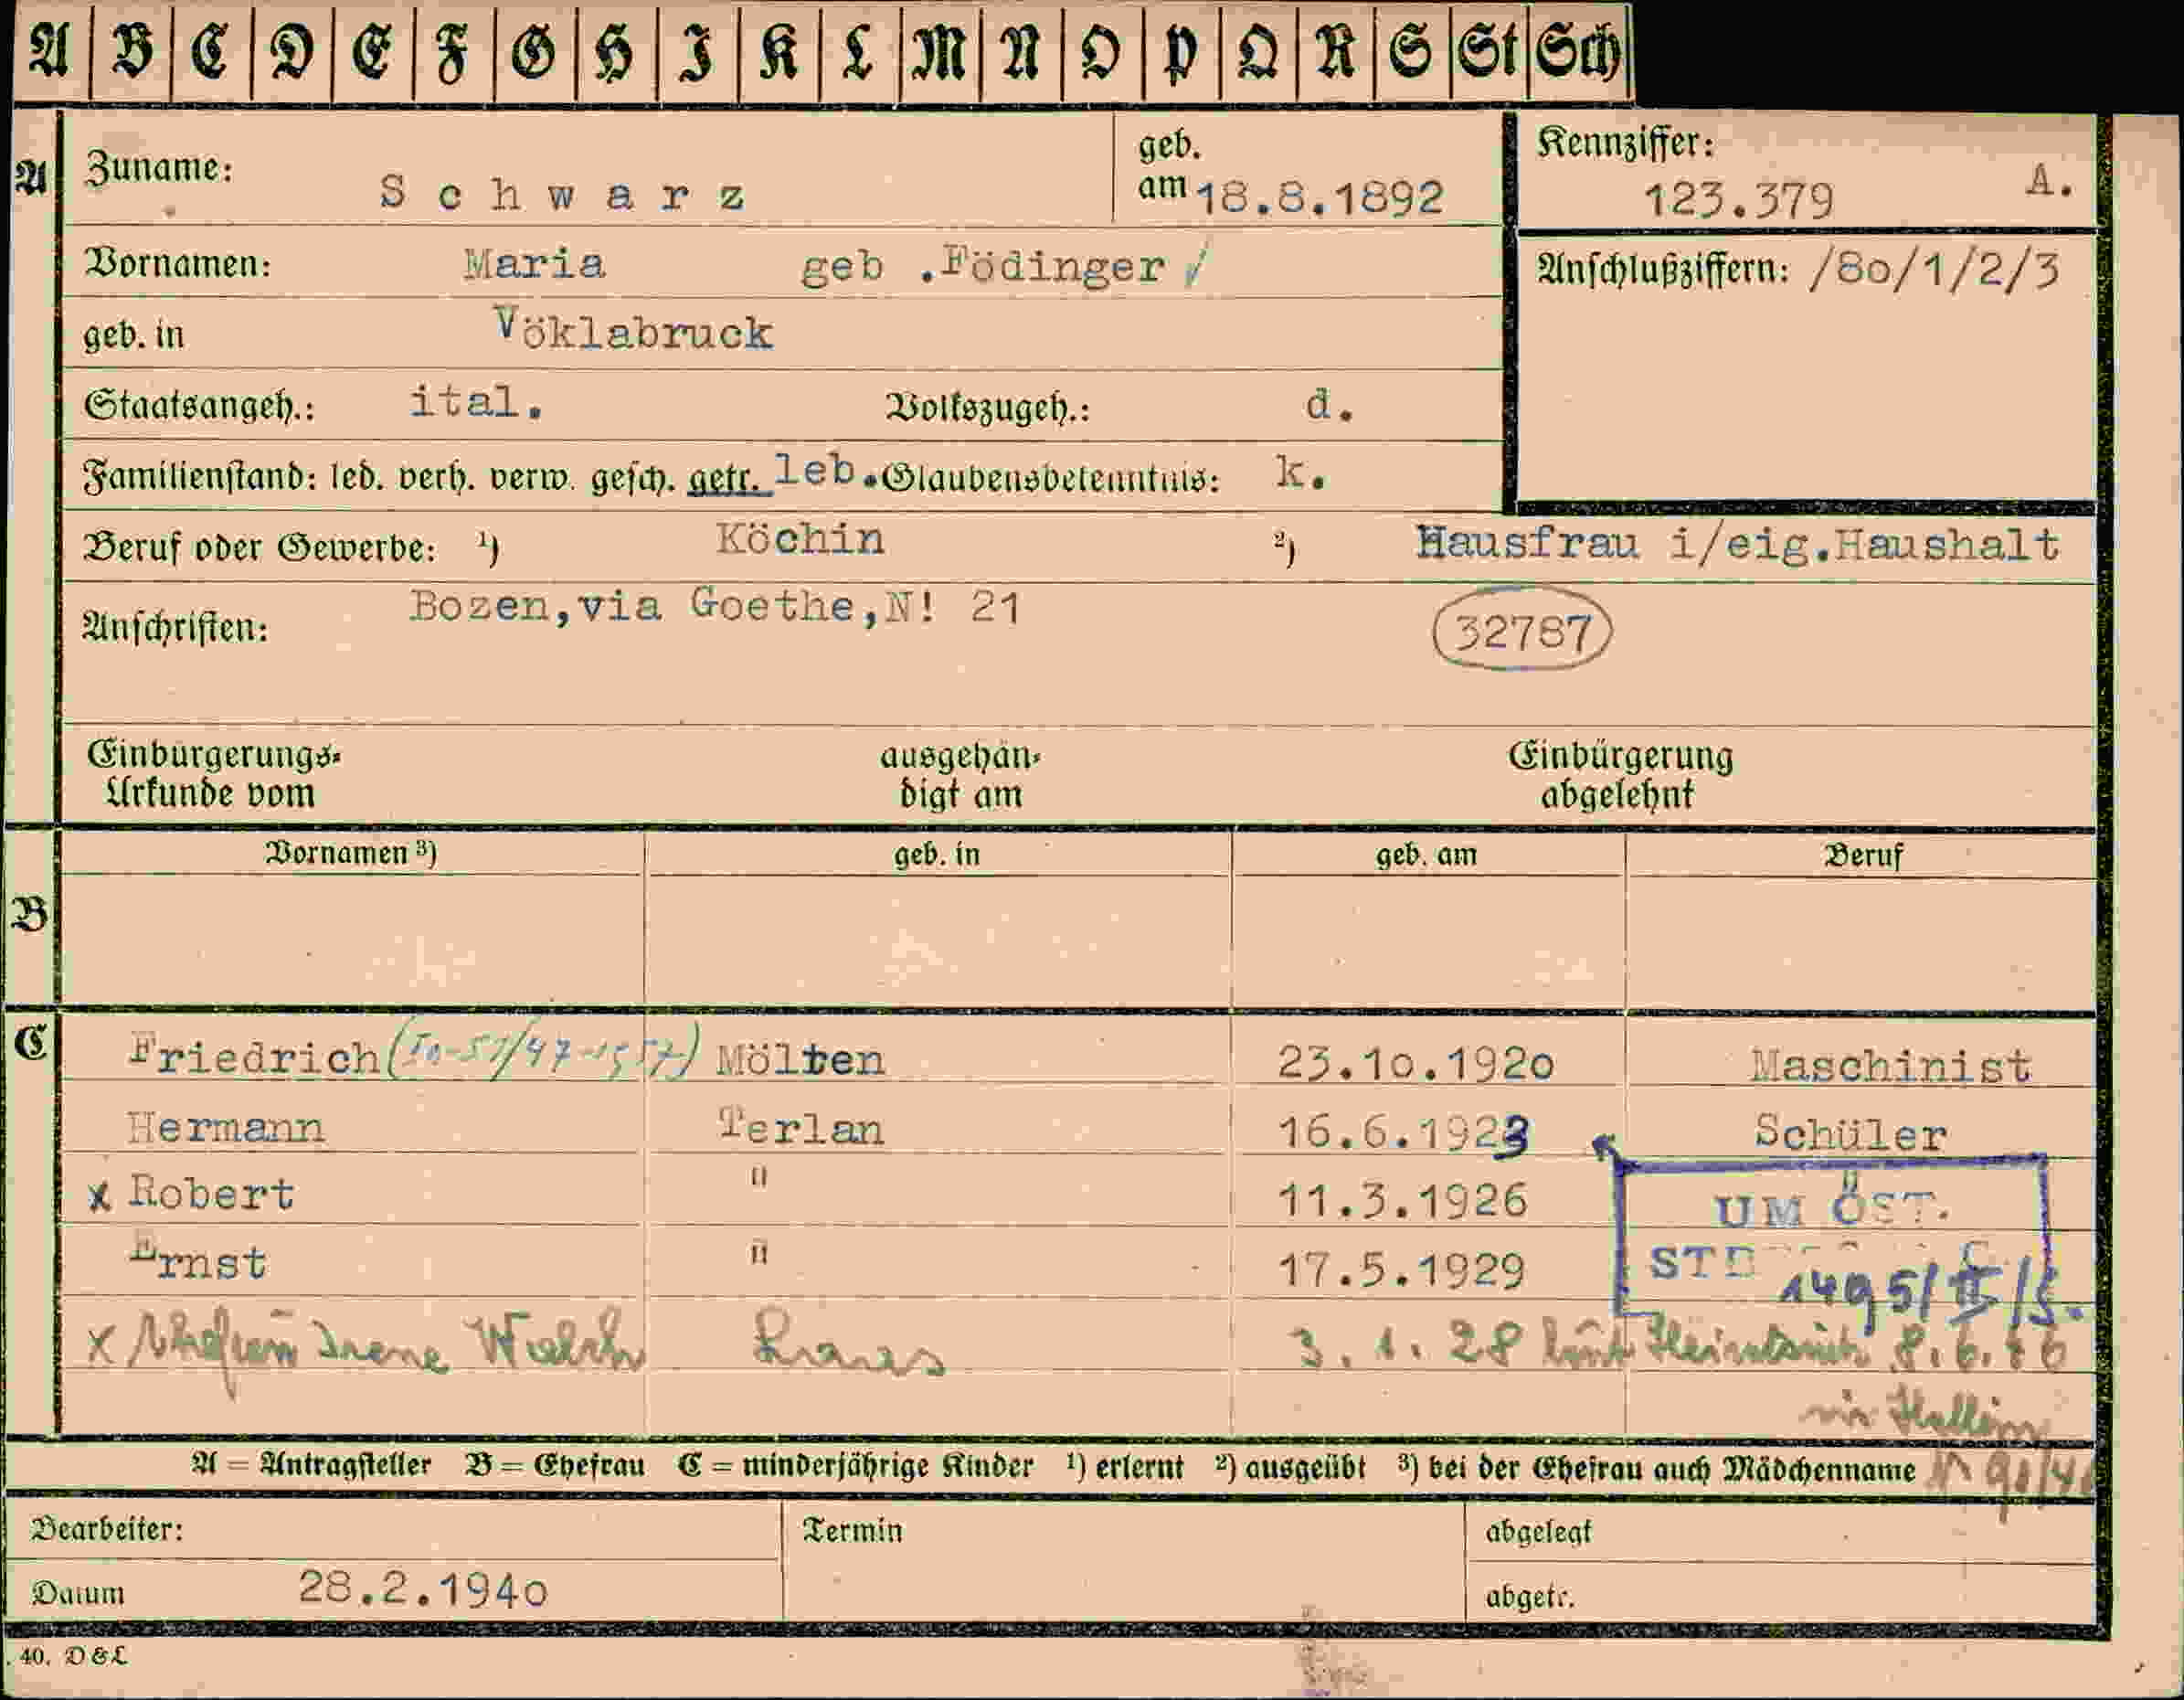 A B C D E F G H I K L M N O P Q R S St Sch
A Zuname: Schwarz geb. am 18.8.1892 Kennziffer: 123.379 A.
Vornamen: Maria geb .Födinger Anschlußziffern: /80/1/2/3
geb. in Vöklabruck
Staatsangeh.: ital. Volkszugeh.: d.
Familienstand: led. verh. verw. gesch. getr. leb. Glaubensbekenntnis: k.
Beruf oder Gewerbe: ¹) Köchin ²) Hausfrau i/eig.Haushalt
Anschriften: Bozen,via Goethe,N! 21 32787
Einbürgerungs- ausgehän- Einbürgerung
Urkunde vom digt am abgelehnt
Vornamen ³) geb. in geb. am Beruf
B
C Friedrich Mölten 23.10.1920 Maschinist
Hermann Terlan 16.6.1923 Schüler
x Robert " 11.3.1926 "
UM ÖST.
Ernst " 17.5.1929
1495/II/
x Irene 3. 1. 28 8. 6.
in Hallein
A = Antragsteller B = Ehefrau C = minderjährige Kinder ¹) erlernt ²) ausgeübt ³) bei der Ehefrau auch Mädchenname
Bearbeiter: Termin abgelegt
Datum 28.2.1940 abgetr.
40. D & L